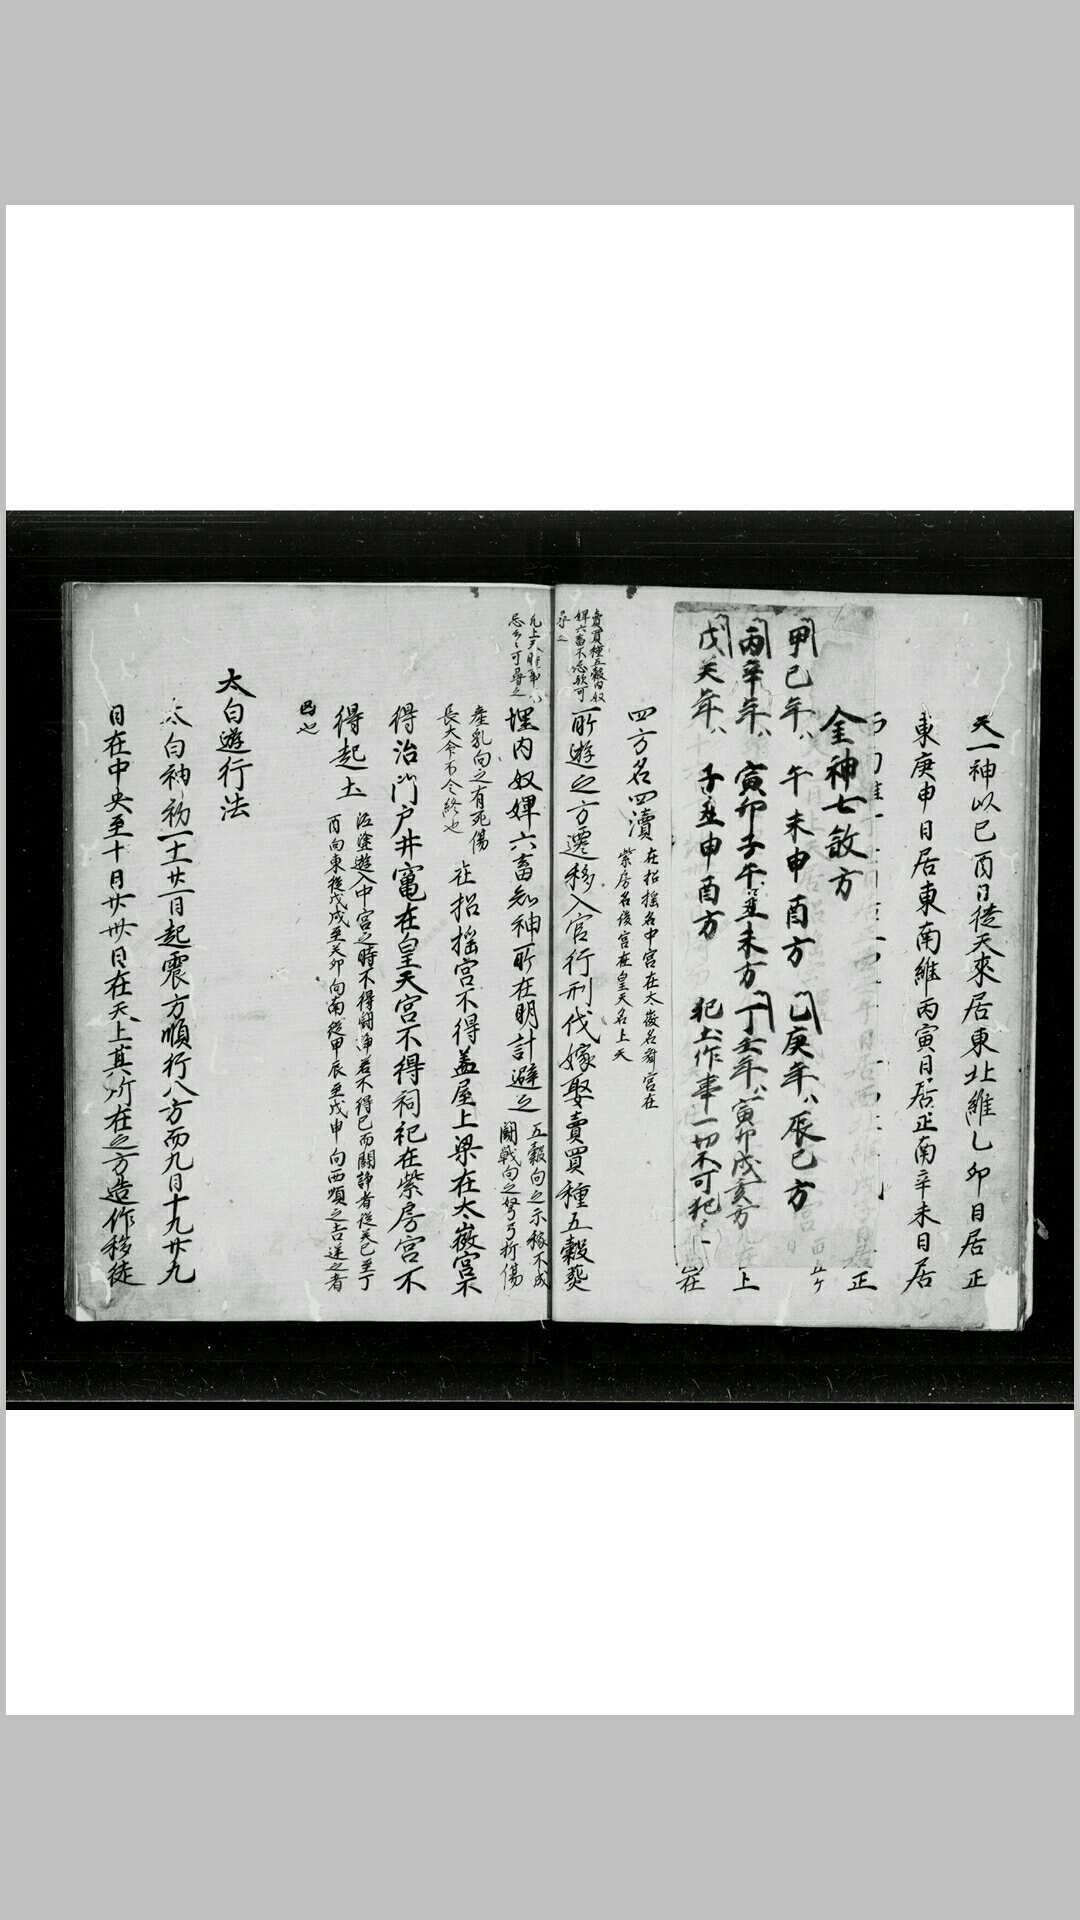 天一神以己酉日従天來居東北維乙卯日居正
東庚申日居東南維丙寅日居正南辛未日居
正
金神七殺方
甲己年 午未申酉方 乙庚年 辰巳方
丙辛年 寅卯子午丑未方 丁壬年 寅卯戌亥方
上
戊癸年 子丑申酉方 犯土作事一切不可犯
在
四方名四瀆
在招摇名中宮在太微名
宮在
紫房名後宮在皇天名上天
賣買種五穀内奴
婢六畜不忌欤可
尋之
所遊之方遷移入官行刑伐嫁娶賣買種五穀葬
凡上天時事
忌可尋之
埋内奴婢六畜知神所在明計避之
五穀向之不稼不成
闘戦向之弩弓折傷
産乳向之有死傷
長大命不令終也
在招摇宮不得盖屋上梁在太微宮不
得治門户井竃在皇天宮不得祠祀在紫房宮不
得起土
遊入中宮之時不得闘諍若不得已而闘諍者従癸巳至丁
酉向東従戊戌至癸卯向南従甲辰至戊申向西順之吉逆之者
凶也
太白遊行法
太白神初一十一廿一日起震方順行八方而九日十九廿九
日在中央至十日廿卅日在天上其所在之方造作移徙